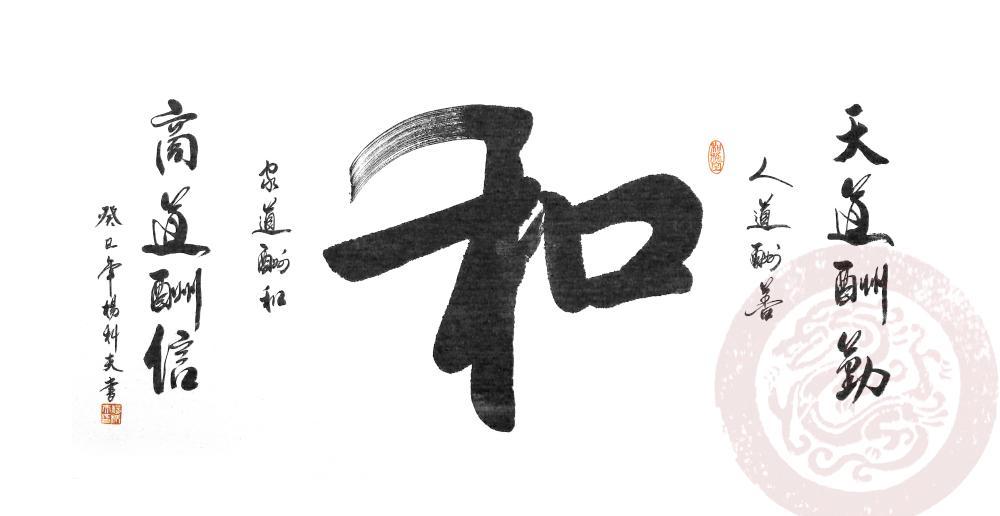 天道酬勤
人道酬善
和
家道酬和
商道酬信
癸巳年楊科夫書